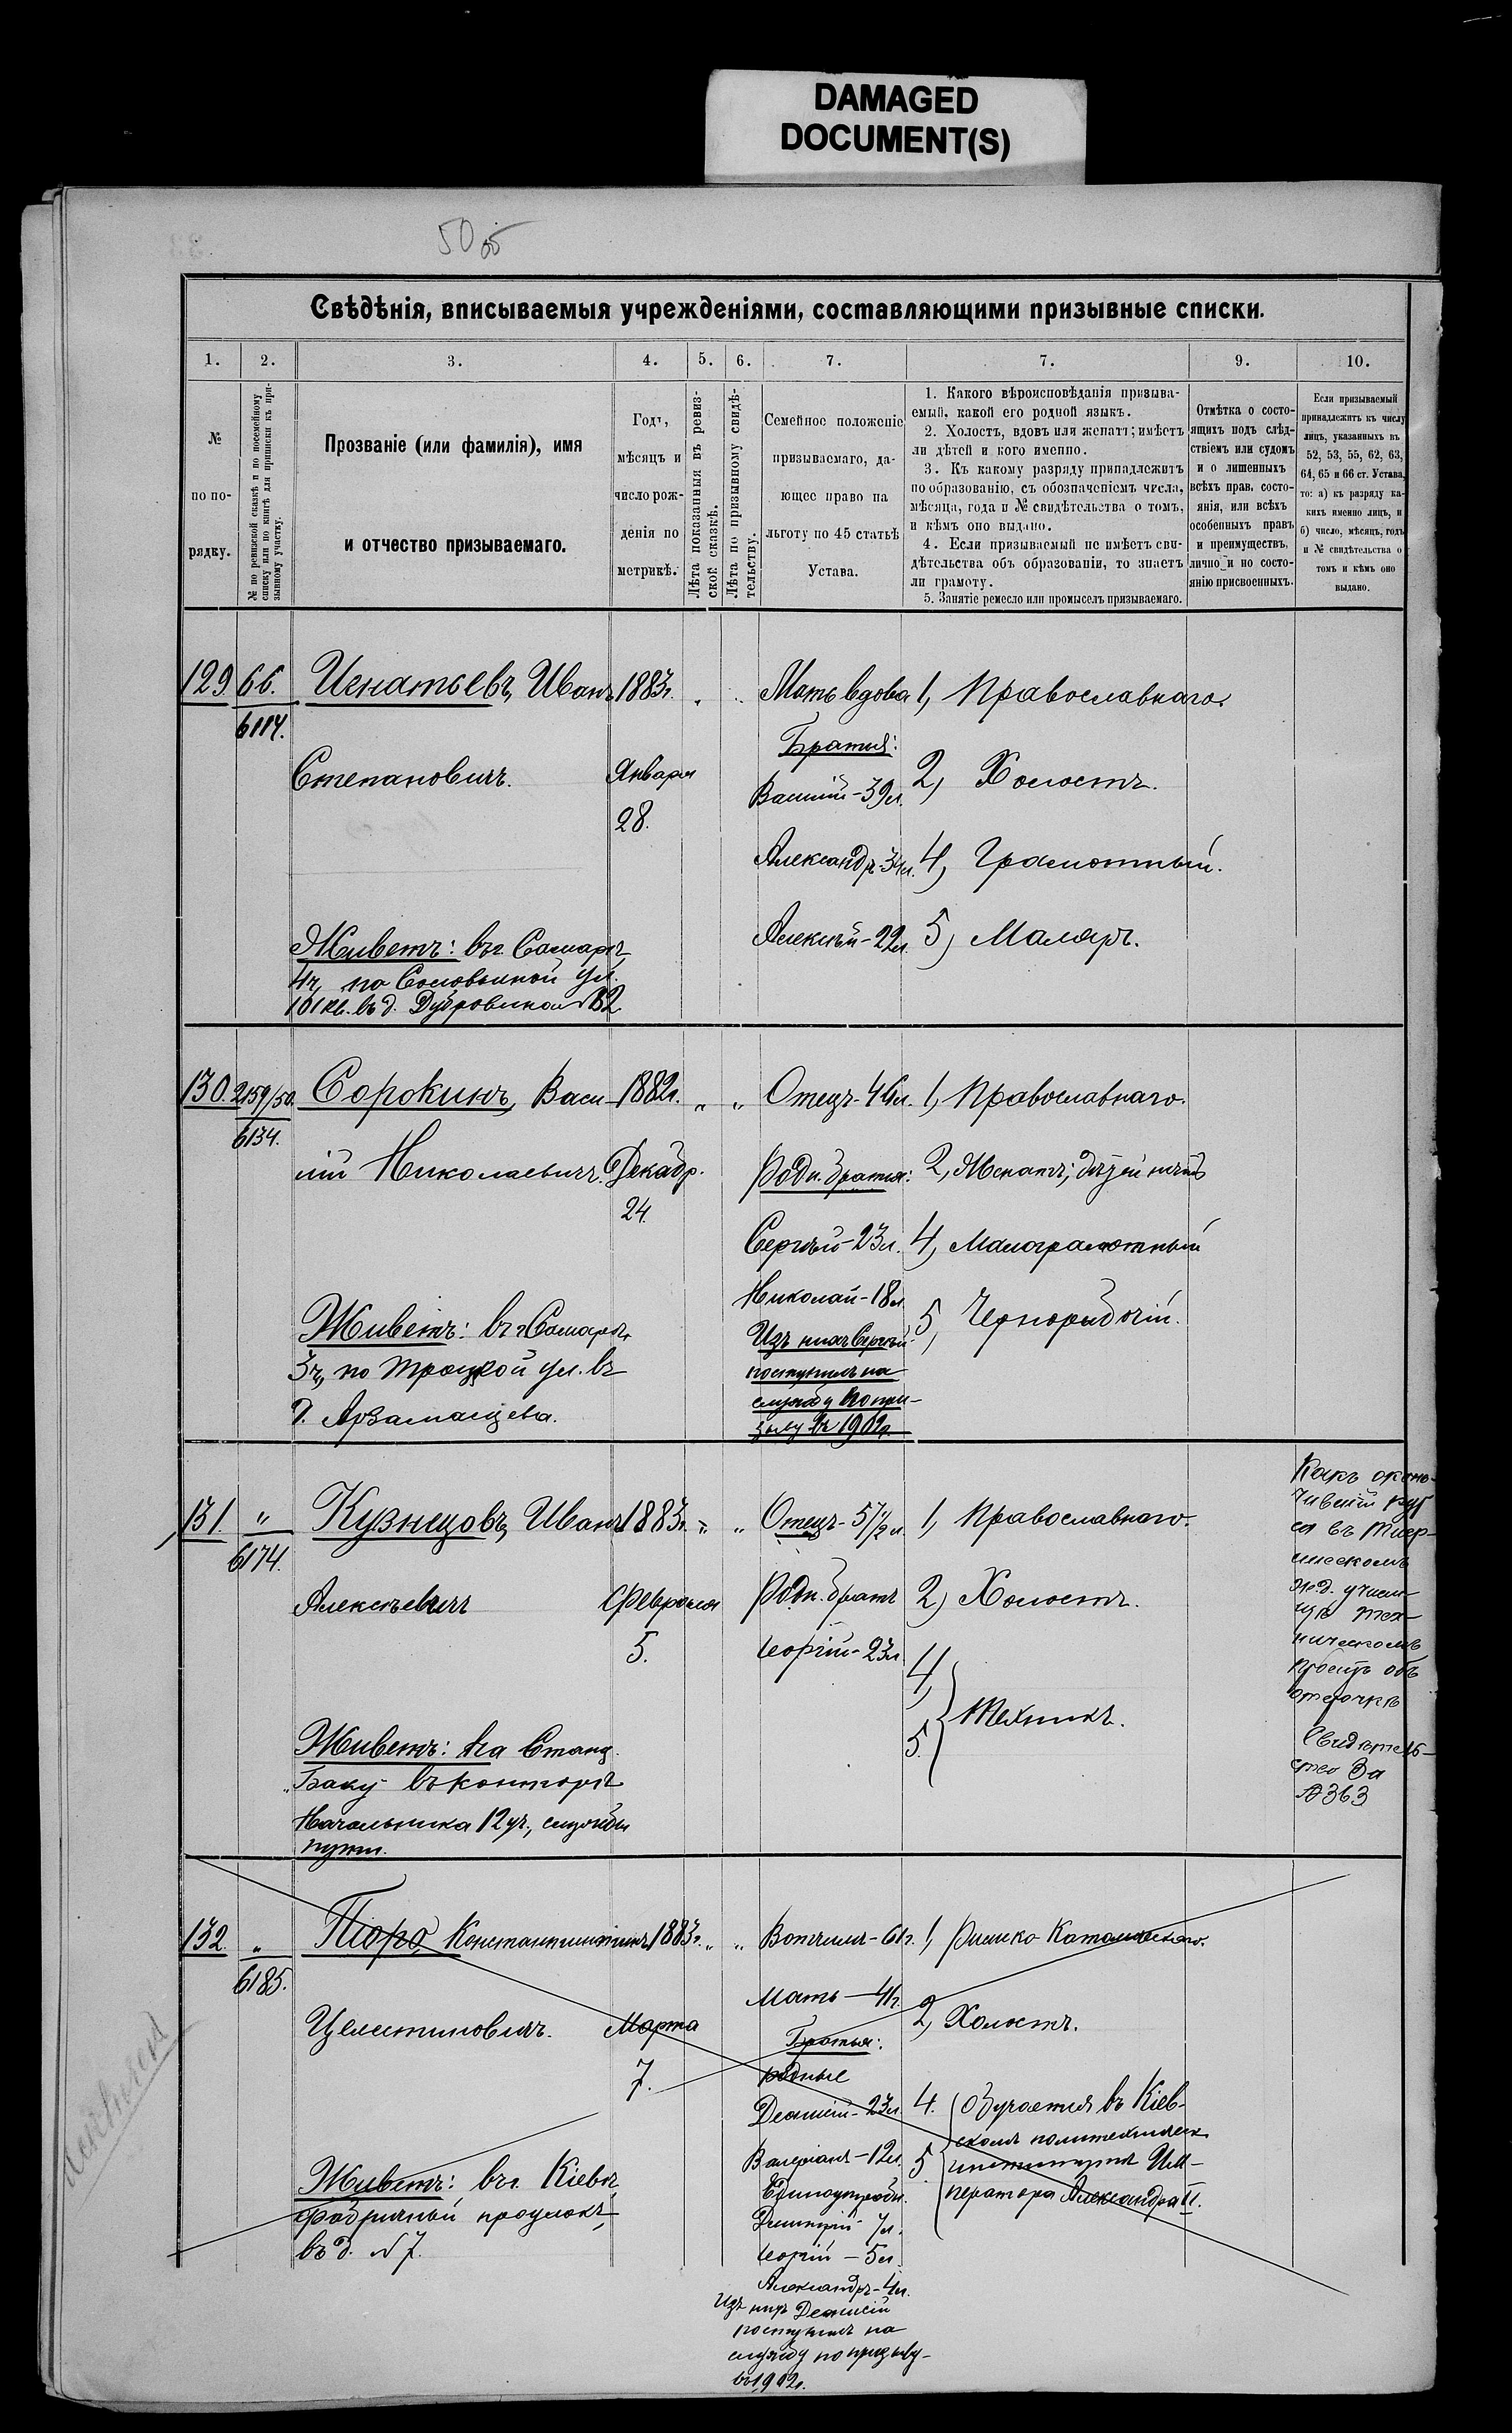 DAMAGED
DOCUMENT(S)
50 об
Свѣдѣнія, вписываемыя учрежденіями, составляющими призывные списки.
1. 2. 3. 4. 5. 6. 7. 7. 9. 10.
№
по по-
рядку.
№ по ревизской сказкѣ и по посемейному
списку или по книгѣ для приписки къ при-
зывному участку.
Прозваніе (или фамилія), имя
и отчество призываемаго.
Годъ,
мѣсяцъ и
число рож-
денія по
метрикѣ.
Лѣта показанныя въ ревиз-
ской сказкѣ.
Лѣта по призывному свидѣ-
тельству.
Семейное положеніе
призываемаго, да-
ющее право на
льготу по 45 статьѣ
Устава.
1. Какого вѣроисповѣданія призыва-
емый, какой его родной языкъ.
2. Холостъ, вдовъ или женатъ; имѣетъ
ли дѣтей и кого именно.
3. Къ какому разряду принадлежитъ
по образованію, съ обозначеніемъ числа,
мѣсяца, года и № свидѣтельства о томъ,
и кѣмъ оно выдано.
4. Если призываемый не имѣетъ сви-
дѣтельства объ образованіи, то знаетъ
ли грамоту.
5. Занятіе ремесло или промыселъ призываемаго.
Отмѣтка о состо-
ящихъ подъ слѣд-
ствіемъ или судомъ
и о лишенныхъ
всѣхъ прав. состо-
янія, или всѣхъ
особенныхъ правъ
и преимуществъ,
лично и по состо-
янію присвоенныхъ.
Если призываемый
принадлежитъ къ числу
лицъ, указанныхъ въ
52, 53, 55, 62, 63,
64, 65 и 66 ст. Устава,
то: а) къ разряду ка-
кихъ именно лицъ, и
б) число, мѣсяцъ, годъ
и № свидѣтельства о
томъ и кѣмъ оно
выдано.
129 66. Игнатьевъ, Иванъ 1883г. " " Мать вдова 1, Православнаго.
6114.
Братья:
Степановичъ. Января Василій - 39л. 2, Холостъ.
28.
Александръ - 34л. 4, Грамотный.
Алексѣй - 22л. 5, Маляръ.
Живетъ: въ г. Самарѣ,
4ч, по Соловьиной ул.
101 кв. въ д. Дубровиной №2
130. 2159/50. Сорокинъ, Васи- 1882г. " " Отецъ - 46л. 1, Православнаго.
6134.
лій Николаевичъ. Декабр. Родн. братья: 2, Женатъ; дѣтей нѣтъ
24.
Сергѣй - 23л. 4, Малограмотный
Николай - 18л. 5, Чернорабочій.
Изъ нихъ Сергѣй
поступилъ на
службу по при-
зыву въ 1902г.
Живетъ: въ г. Самарѣ,
3ч, по Троицкой ул. въ
д. Арзамасцева.
131. " Кузнецовъ, Иванъ 1883г. " " Отецъ - 57½ л. 1, Православнаго.
6174.
Алексѣевичъ Февраля Родн. братъ 2, Холостъ.
5. Георгій - 23л.
4,
5. Техникъ.
Живетъ: на Станц.
Баку въ конторѣ
Начальника 12 уч., службы
пути.
Какъ окон-
чившій кур
са въ
ж.д. учили-
щѣ тех-
ническомъ
проситъ объ
отсрочкѣ
Свидѣтель-
ство за
№ 363
132. " Пюро Константинъ 1883г. " " Вотчимъ - 61г. 1, Римско Католическаго.
6185.
Целестиновичъ. Марта Мать - 41г. 2, Холостъ.
7.
Братья:
родные
Деонисій - 23л.
Валеріанъ - 12л.
Единоутробн.
Дмитрій 7л.
Георгій - 5л.
Александръ - 4л.
Изъ нихъ Деонисій
поступилъ на
службу по призыву
въ 1902г.
4. Обучается въ Кіев-
скомъ политехническ
5 институтѣ Им-
ператора Александра II.
Живетъ: въ г. Кіевѣ,
Фабричный проулокъ,
въ д. №7.